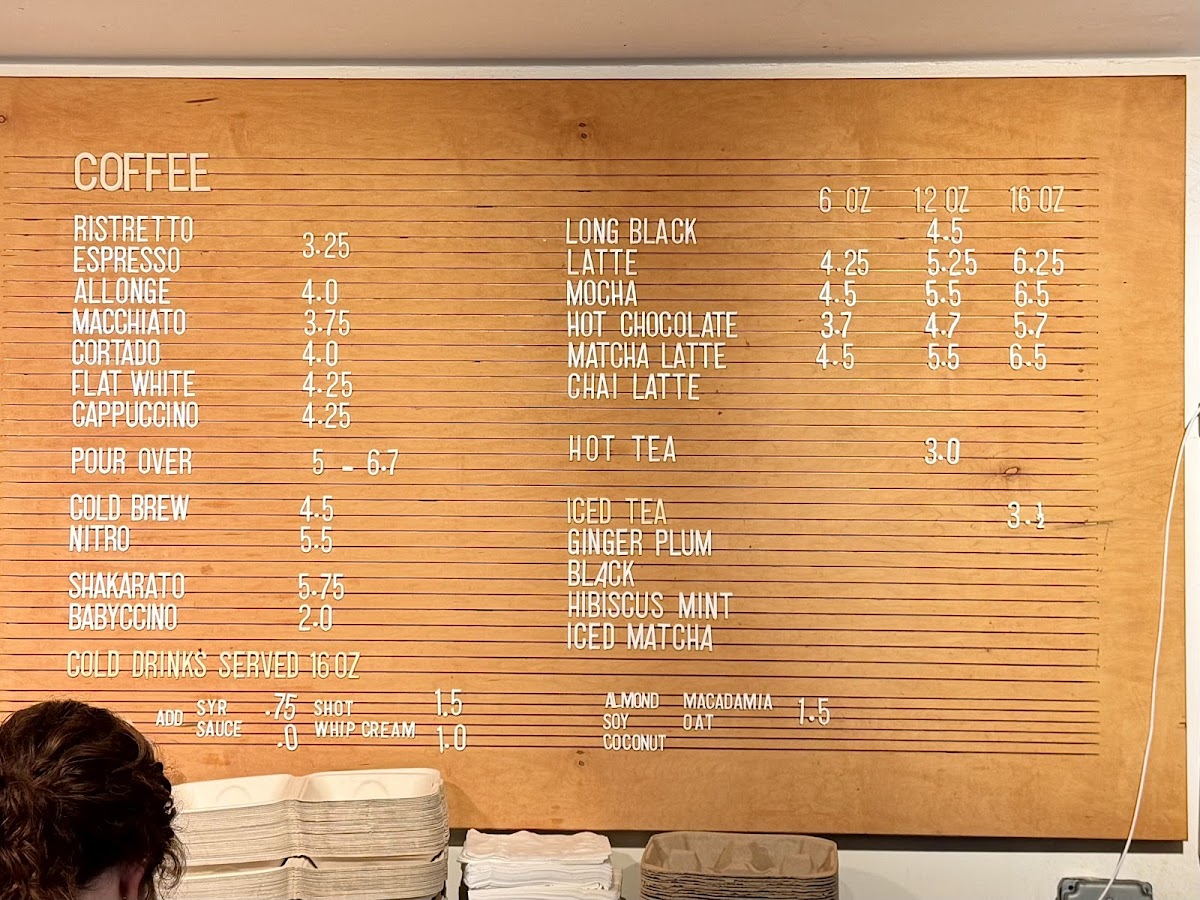 COFFEE
RISTRETTO
ESPRESSO 3.25
ALLONGE 4.0
MACCHIATO 3.75
CORTADO 4.0
FLAT WHITE 4.25
CAPPUCCINO 4.25
POUR OVER 5 - 6.7
COLD BREW 4.5
NITRO 5.5
SHAKARATO 5.75
BABYCCINO 2.0
COLD DRINKS SERVED 16 OZ
ADD SYR .75 SHOT 1.5
SAUCE .0 WHIP CREAM 1.0
6 OZ 12 OZ 16 OZ
LONG BLACK 4.5
LATTE 4.25 5.25 6.25
MOCHA 4.5 5.5 6.5
HOT CHOCOLATE 3.7 4.7 5.7
MATCHA LATTE 4.5 5.5 6.5
CHAI LATTE
HOT TEA 3.0
ICED TEA 3.½
GINGER PLUM
BLACK
HIBISCUS MINT
ICED MATCHA
ALMOND MACADAMIA 1.5
SOY OAT
COCONUT